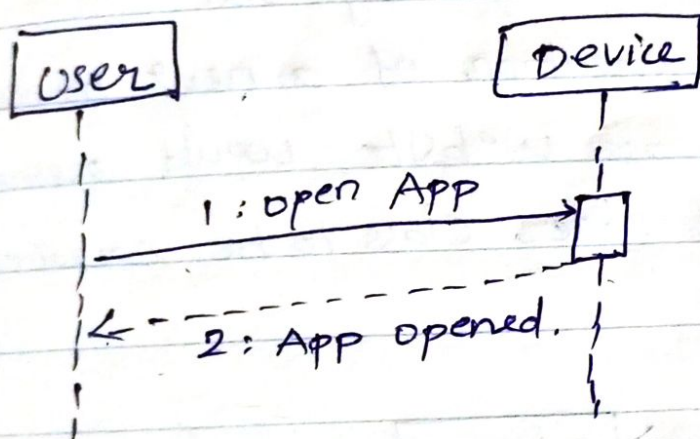 User
Device
1 : open App
2 : App opened.